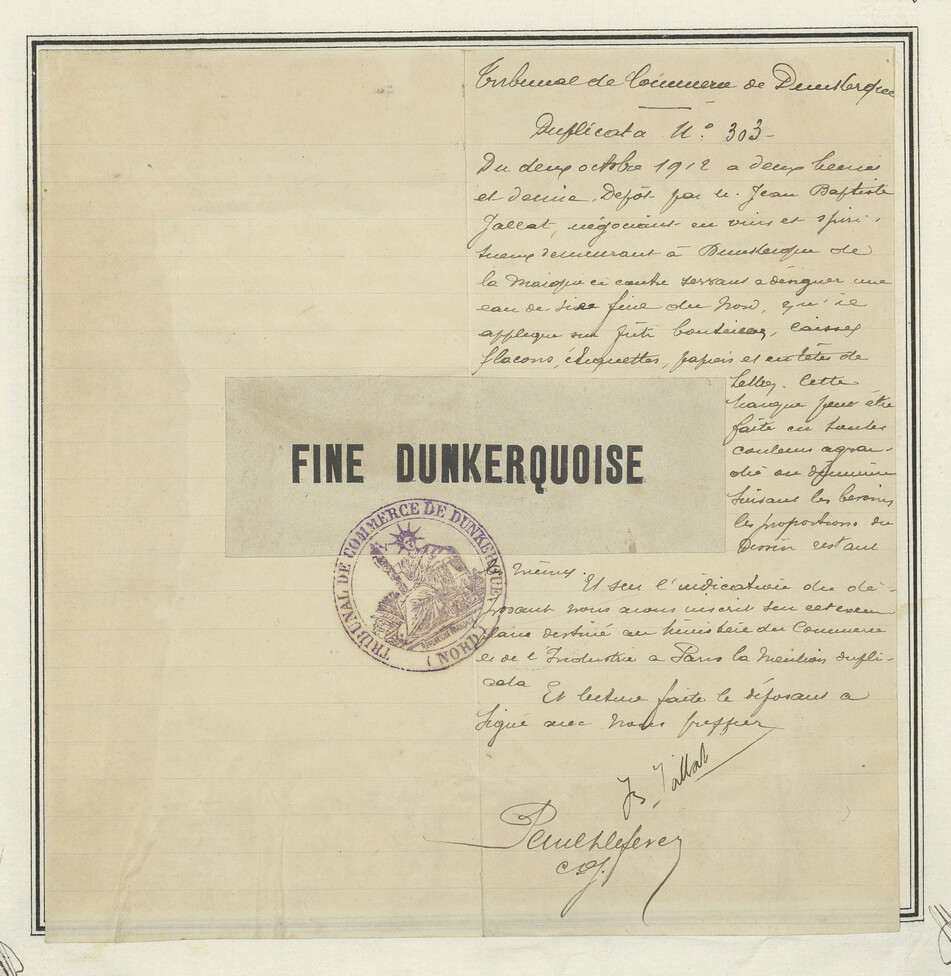 Tribunal de Commerce de Dunkerque
Duplicata N° 303-
Du deux octobre 1912 a deux heures
et demie, Dépôt par M. Jean Baptiste
Jallat, négociant en vins et spiri-
tueux demeurant à Dunkerque de
la Marque ci contre servant a désigner une
eau de vie fine du Nord, qu'il
applique sur fûts bouteilles, caisses
flacons, étiquettes, papiers et entêtes de
lettres. Cette
marque peut être
faite en toutes
couleurs agran-
die ou diminuée
suivant les besoins
les proportions du
Dessin restant
mêmes.
FINE DUNKERQUOISE
TRIBUNAL DE COMMERCE DE DUNKERQUE
(NORD)
Et sur l'indication du dé-
posant nous avons inscrit sur cet exem
plaire destiné au Ministère du Commerce
et de l'Industrie a Paris la Mention dupli-
cata
Et lecture faite le déposant a
signé avec Nous greffier
JB Jallat